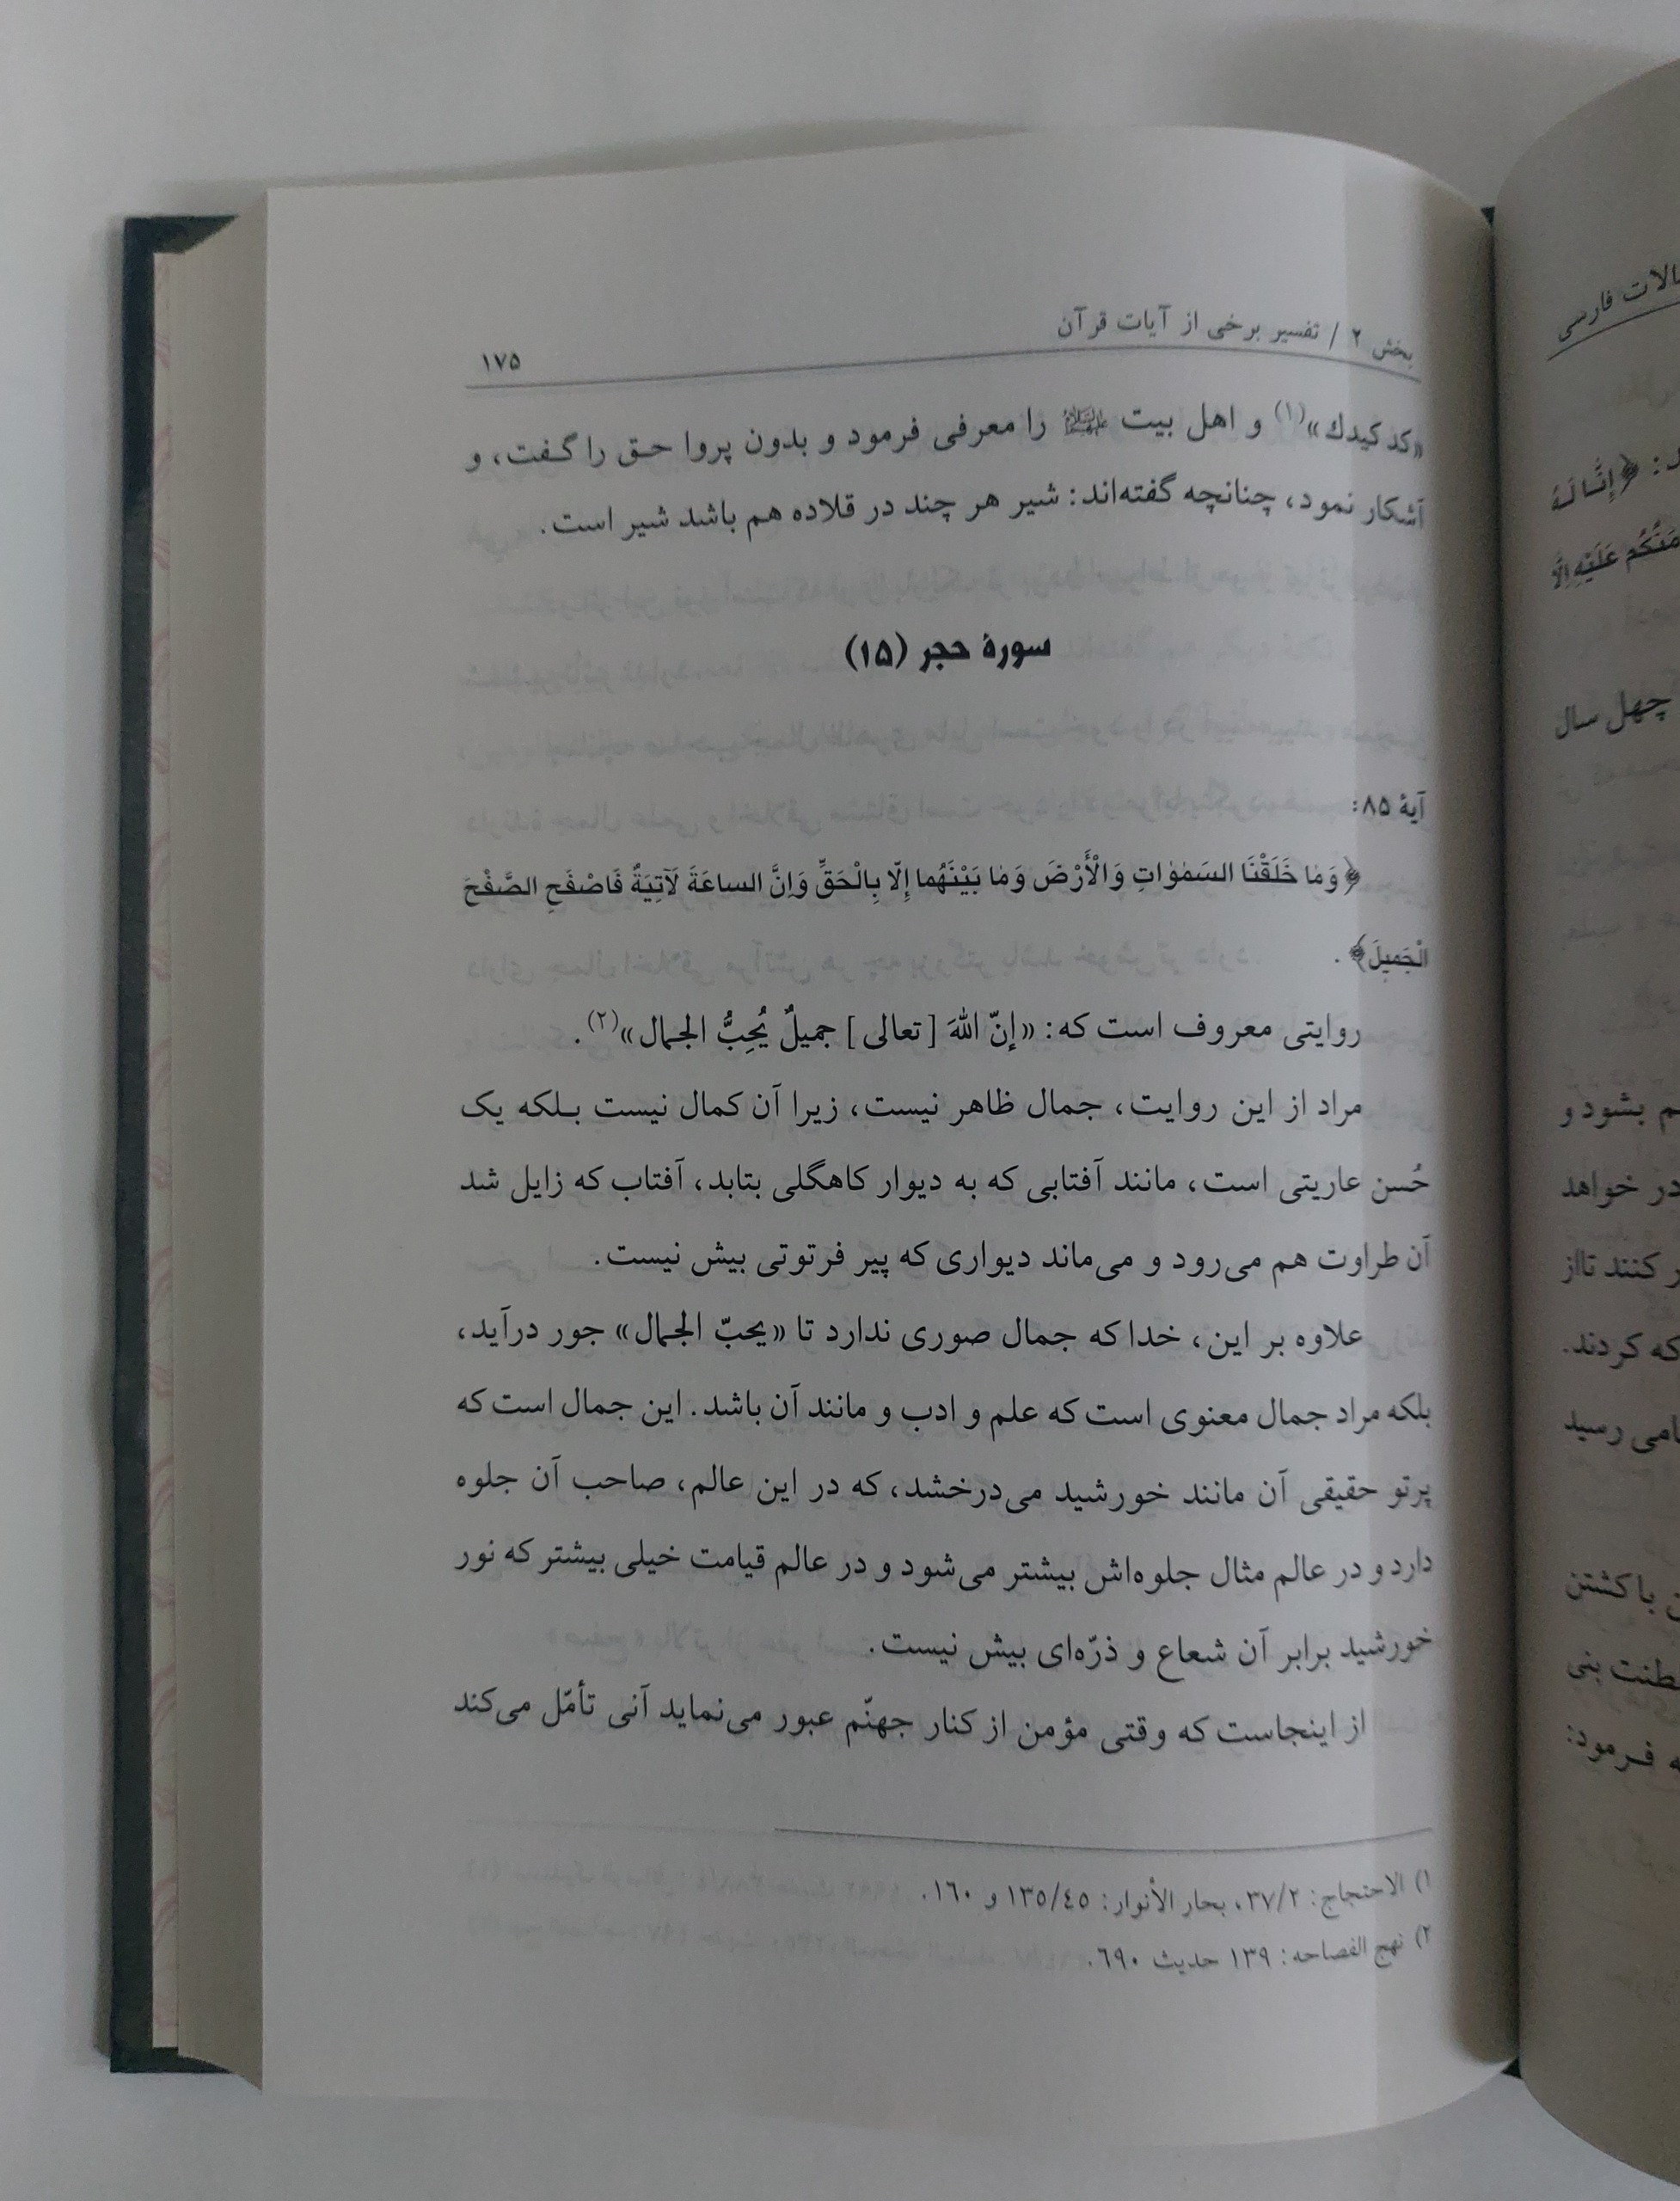 بخش ۲ / تفسیر برخی از آیات قرآن
۱۷۵
«کد کیدك»(۱) و اهل بیت علیهم‌السلام را معرفی فرمود و بدون پروا حق را گفت، و
آشکار نمود، چنانچه گفته‌اند: شیر هر چند در قلاده هم باشد شیر است.
سورهٔ حجر (۱۵)
آیهٔ ۸۵:
﴿وَمٰا خَلَقْنَا السَمٰوٰاتِ وَالْأَرْضَ وَمٰا بَیْنَهُما إِلّا بِالْحَقِّ وَاِنَّ الساعَةَ لَآتِیَةٌ فَاصْفَحِ الصَّفْحَ
الْجَمیلَ﴾ .
روایتی معروف است که: «إنّ اللهَ [تعالی] جمیلٌ یُحِبُّ الجمال»(۲).
مراد از این روایت، جمال ظاهر نیست، زیرا آن کمال نیست بلکه یک
حُسن عاریتی است، مانند آفتابی که به دیوار کاهگلی بتابد، آفتاب که زایل شد
آن طراوت هم می‌رود و می‌ماند دیواری که پیر فرتوتی بیش نیست.
علاوه بر این، خدا که جمال صوری ندارد تا «یحبّ الجمال» جور درآید،
بلکه مراد جمال معنوی است که علم و ادب و مانند آن باشد. این جمال است که
پرتو حقیقی آن مانند خورشید می‌درخشد، که در این عالم، صاحب آن جلوه
دارد و در عالم مثال جلوه‌اش بیشتر می‌شود و در عالم قیامت خیلی بیشتر که نور
خورشید برابر آن شعاع و ذرّه‌ای بیش نیست.
از اینجاست که وقتی مؤمن از کنار جهنّم عبور می‌نماید آنی تأمّل می‌کند
۱) الاحتجاج: ۳۷/۲، بحار الأنوار: ۱۳۵/٤۵ و ۱٦۰.
۲) نهج الفصاحه: ۱۳۹ حدیث ٦۹۰.
فارسی
د: ﴿إِنَّا لَهُ
عَلَیْهِ إِلَّا
چهل سال
بشود و
در خواهد
کنند تا از
که کردند.
رسید
با کشتن
بنی
فرمود: